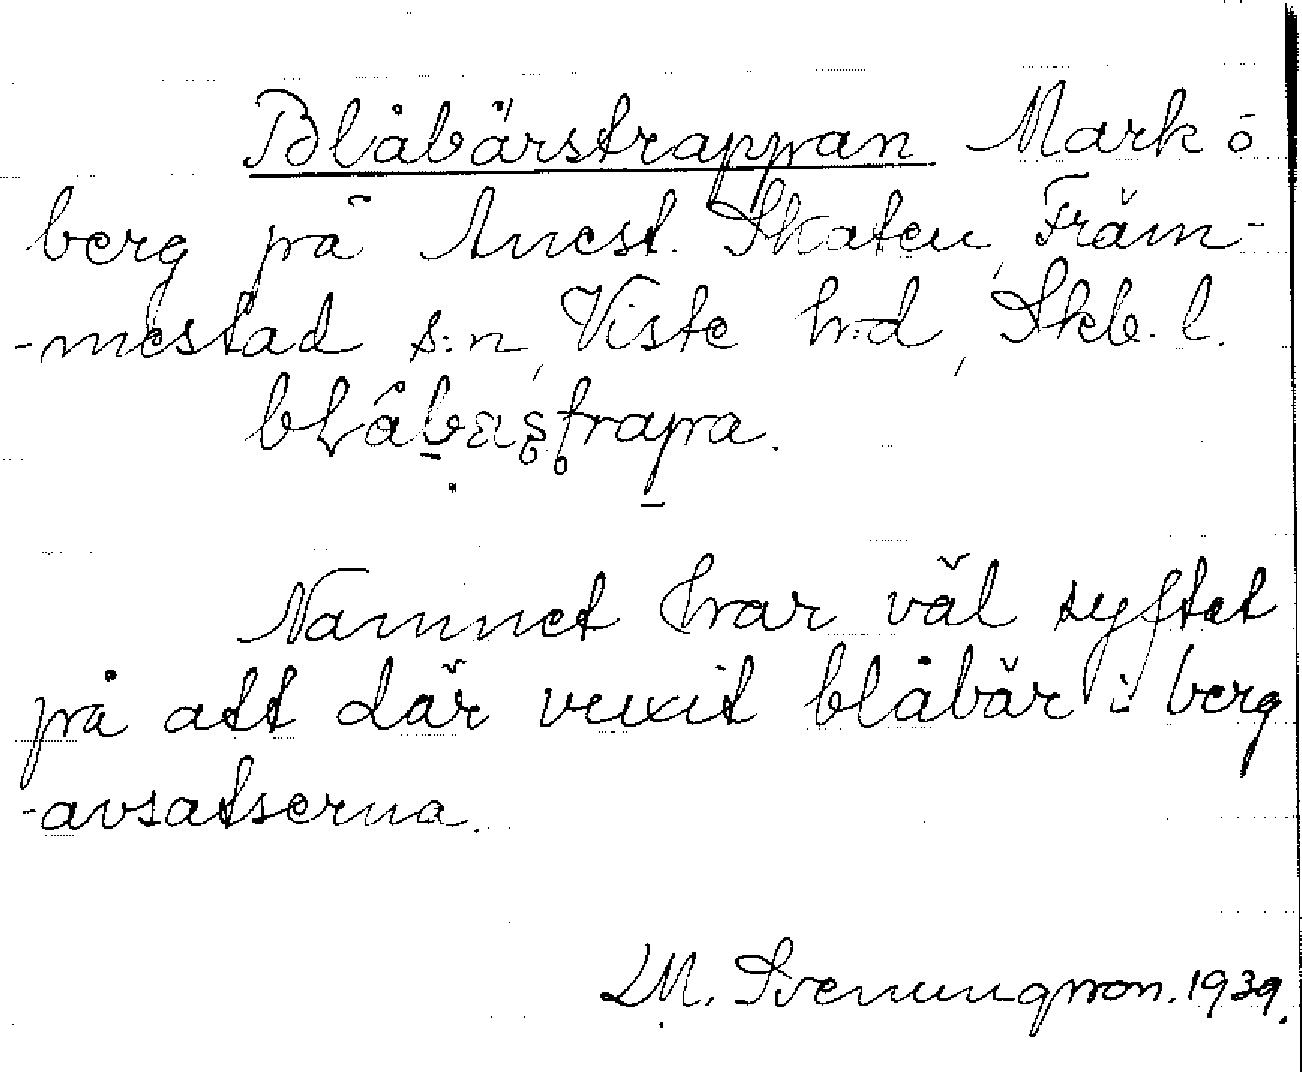 Blåbärstrappan Mark o
berg på hmest. Skaten, Främ-
-mestad s:n, Viste h:d, Skb. l.
Namnet har väl syftat
på att där vuxit blåbär i berg
-avsatserna.
LM. Svenungsson. 1939.